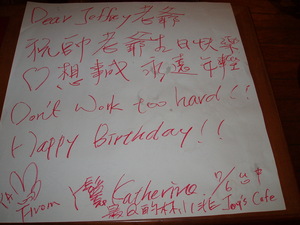 Dear Jeffrey老爺
祝帥老爺吉日快樂
♡想事成 永遠年輕
Don't Work too hard!!
Happy Birthday!!
From Katherine 7/6
Joy's Cafe